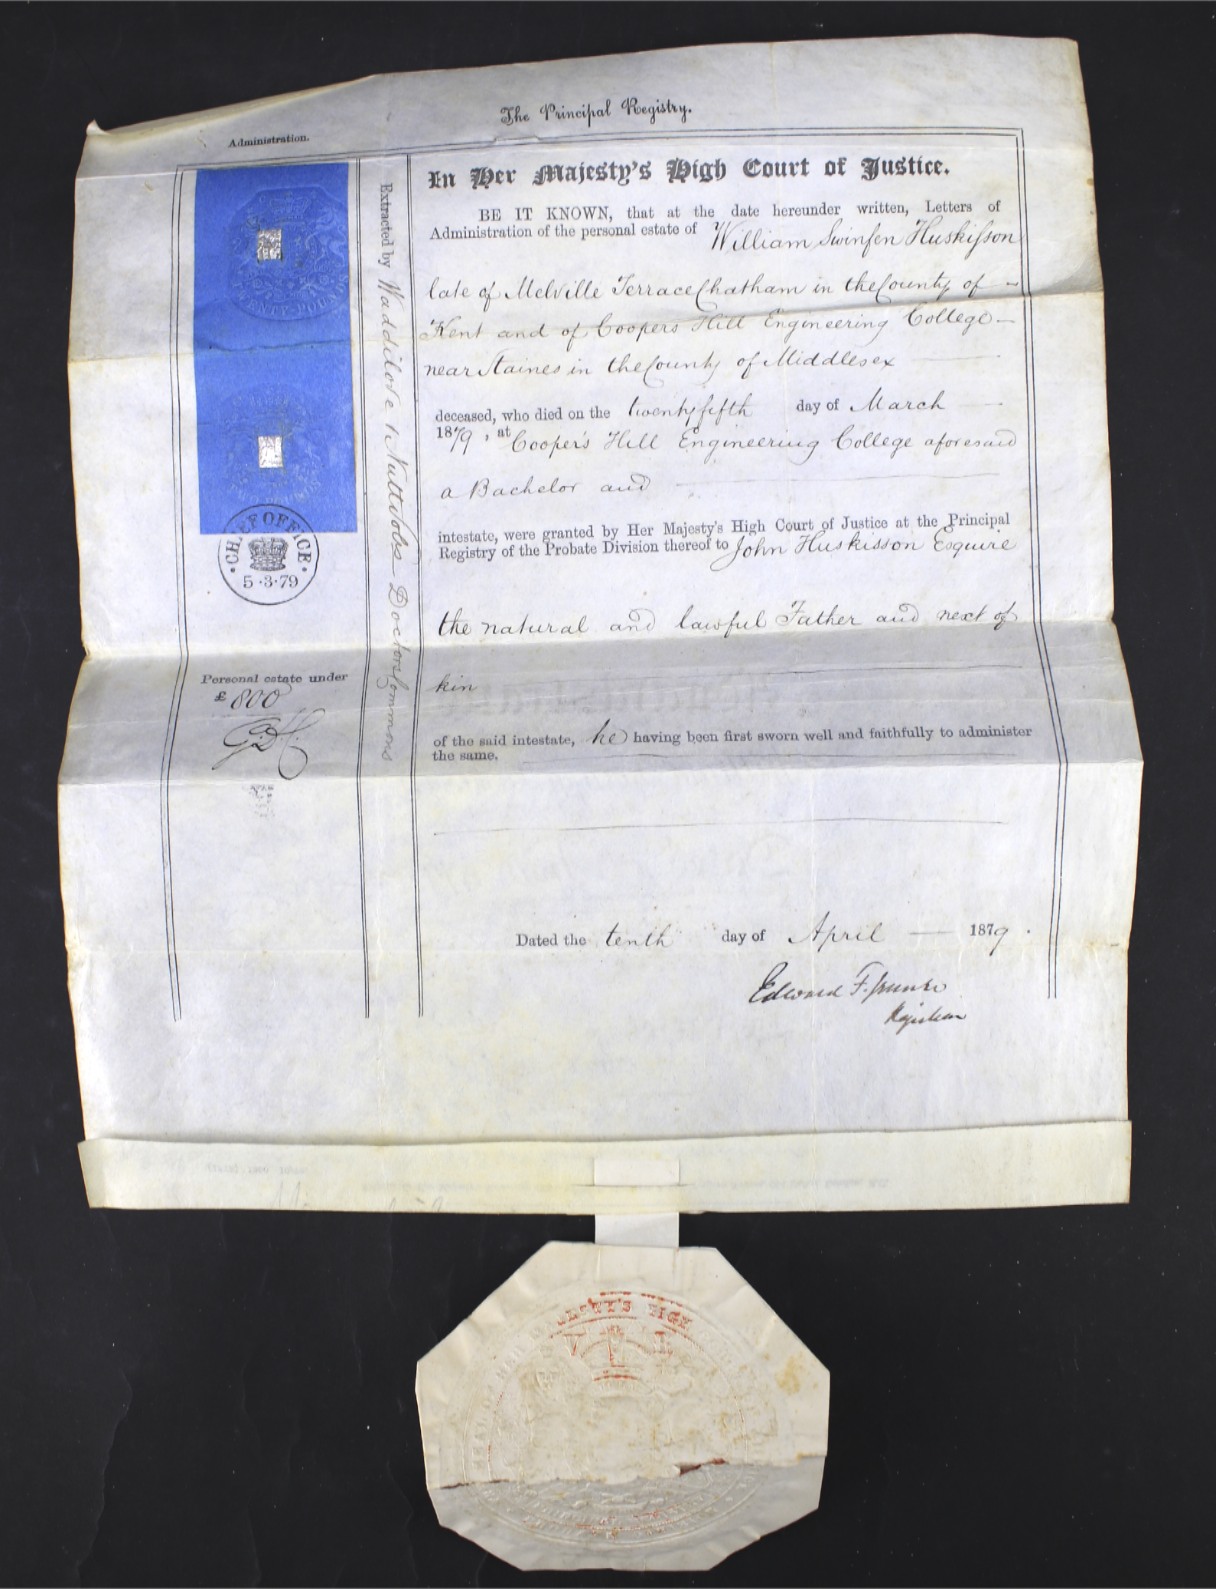 The Principal Registry.
Administration.
In Her Majesty's High Court of Justice.
BE IT KNOWN, that at the date hereunder written, Letters of
Administration of the personal estate of William Swinfen Huskisson
late of Melville Terrace Chatham in the County of
Kent and of Coopers Hill Engineering College
near Staines in the County of Middlesex
deceased, who died on the twenty fifth day of March
1879, at Cooper's Hill Engineering College aforesaid
a Bachelor and
intestate, were granted by Her Majesty's High Court of Justice at the Principal
Registry of the Probate Division thereof to John Huskisson Esquire
the natural and lawful Father and next of
kin
of the said intestate, he having been first sworn well and faithfully to administer
the same.
Dated the tenth day of April 1879.
Edward F.
Registrar
Extracted by Waddilove & Nutt Doctors Commons
CHIEF OFFICE
5·3·79
Personal estate under
£800